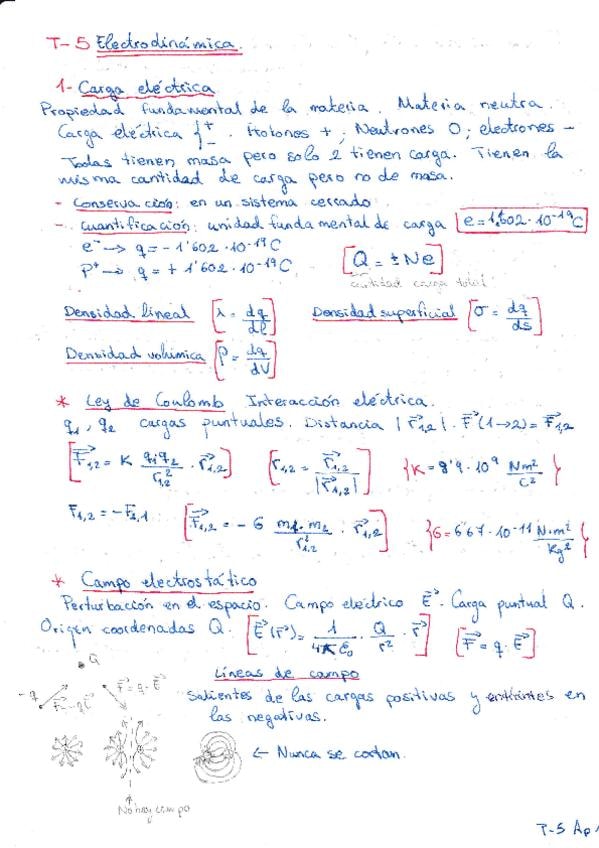 T-5 Electrodinámica.
1- Carga eléctrica
Propiedad fundamental de la materia. Materia neutra.
Carga eléctrica { + - . Protones + ; Neutrones 0 ; electrones -
Todas tienen masa pero solo 2 tienen carga. Tienen la
misma cantidad de carga pero no de masa.
- Conservación: en un sistema cerrado
- Cuantificación: unidad fundamental de carga [e = 1,602 · 10⁻¹⁹ C]
e⁻ → q = - 1'602 · 10⁻¹⁹ C
p⁺ → q = + 1'602 · 10⁻¹⁹ C [Q = ± Ne]
cantidad carga total
Densidad lineal [λ = dq/dl] Densidad superficial [σ = dq/ds]
Densidad volúmica [ρ = dq/dV]
* Ley de Coulomb Interacción eléctrica.
q₁, q₂ cargas puntuales. Distancia |r⃗₁,₂|. F⃗(1→2) = F⃗₁,₂
[F⃗₁,₂ = K q₁q₂/r²₁,₂ · r⃗₁,₂] [r₁,₂ = r⃗₁,₂/|r⃗₁,₂|] {K = 8'9 · 10⁹ Nm²/C²}
F₁,₂ = -F₂,₁ [F⃗₁,₂ = - G m₁·m₂/r²₁,₂ · r⃗₁,₂] {G = 6'67 · 10⁻¹¹ N·m²/Kg²}
* Campo electrostático
Perturbación en el espacio. Campo eléctrico E⃗. Carga puntual Q.
Origen coordenadas Q. [E⃗(r⃗) = 1/4πε₀ · Q/r² · r⃗] [F⃗ = q · E⃗]
Q
Líneas de campo
-q F⃗=-qE⃗ F⃗=q·E⃗
Salientes de las cargas positivas y entrantes en
las negativas.
← Nunca se cortan.
No hay campo
T-5 Ap